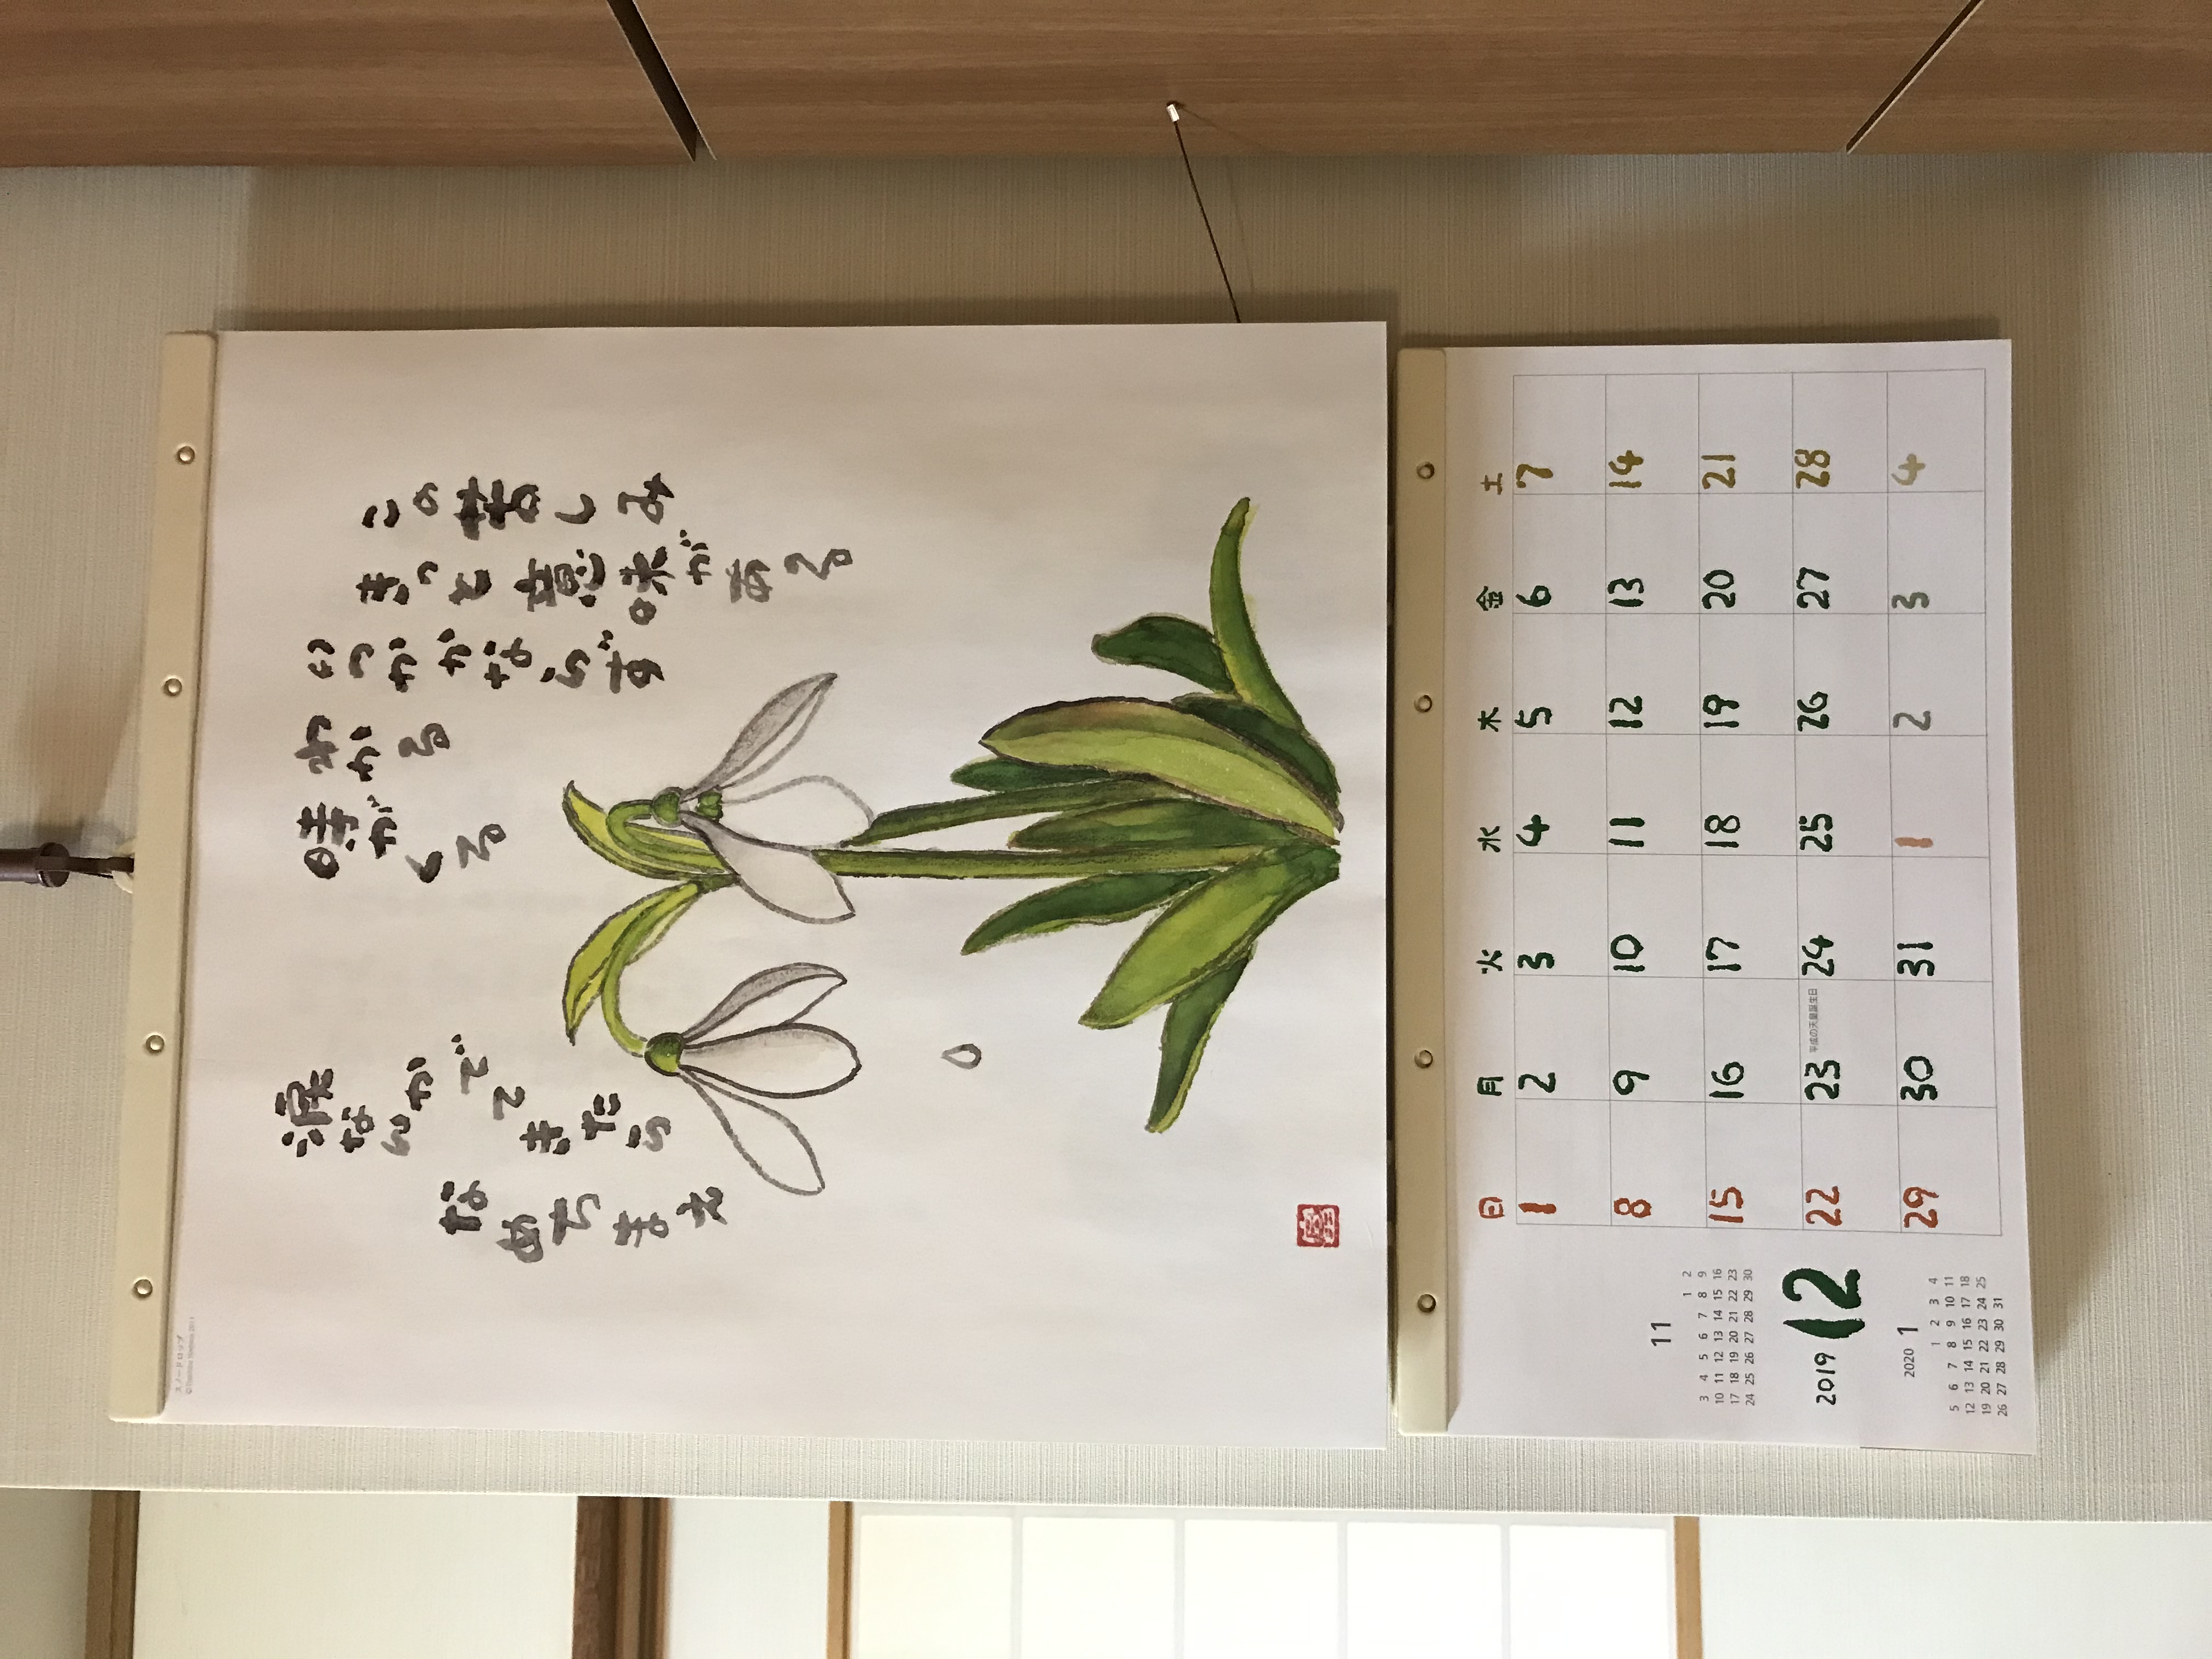 この苦しみ
きっと意味がある
いつかかならず
わかる
時がくる
涙なんかでてきたら
なめちまえ
スノードロップ
11
1 2
3 4 5 6 7 8 9
10 11 12 13 14 15 16
17 18 19 20 21 22 23
24 25 26 27 28 29 30
2019 12
2020 1
1 2 3 4
5 6 7 8 9 10 11
12 13 14 15 16 17 18
19 20 21 22 23 24 25
26 27 28 29 30 31
日 月 火 水 木 金 土
1 2 3 4 5 6 7
8 9 10 11 12 13 14
15 16 17 18 19 20 21
22 23 平成の天皇誕生日 24 25 26 27 28
29 30 31 1 2 3 4